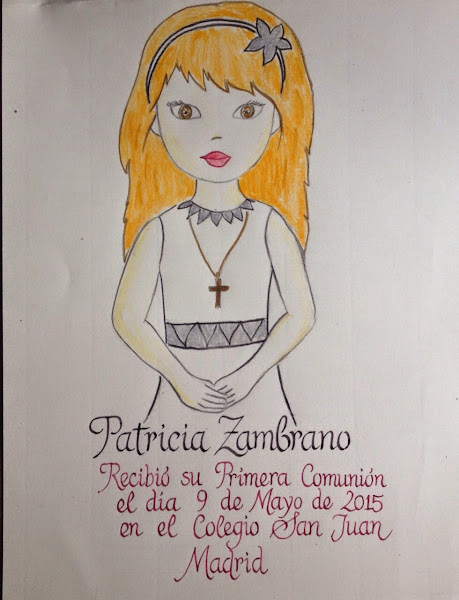 Patricia Zambrano
Recibió su Primera Comunión
el día 9 de Mayo de 2015
en el Colegio San Juan
Madrid